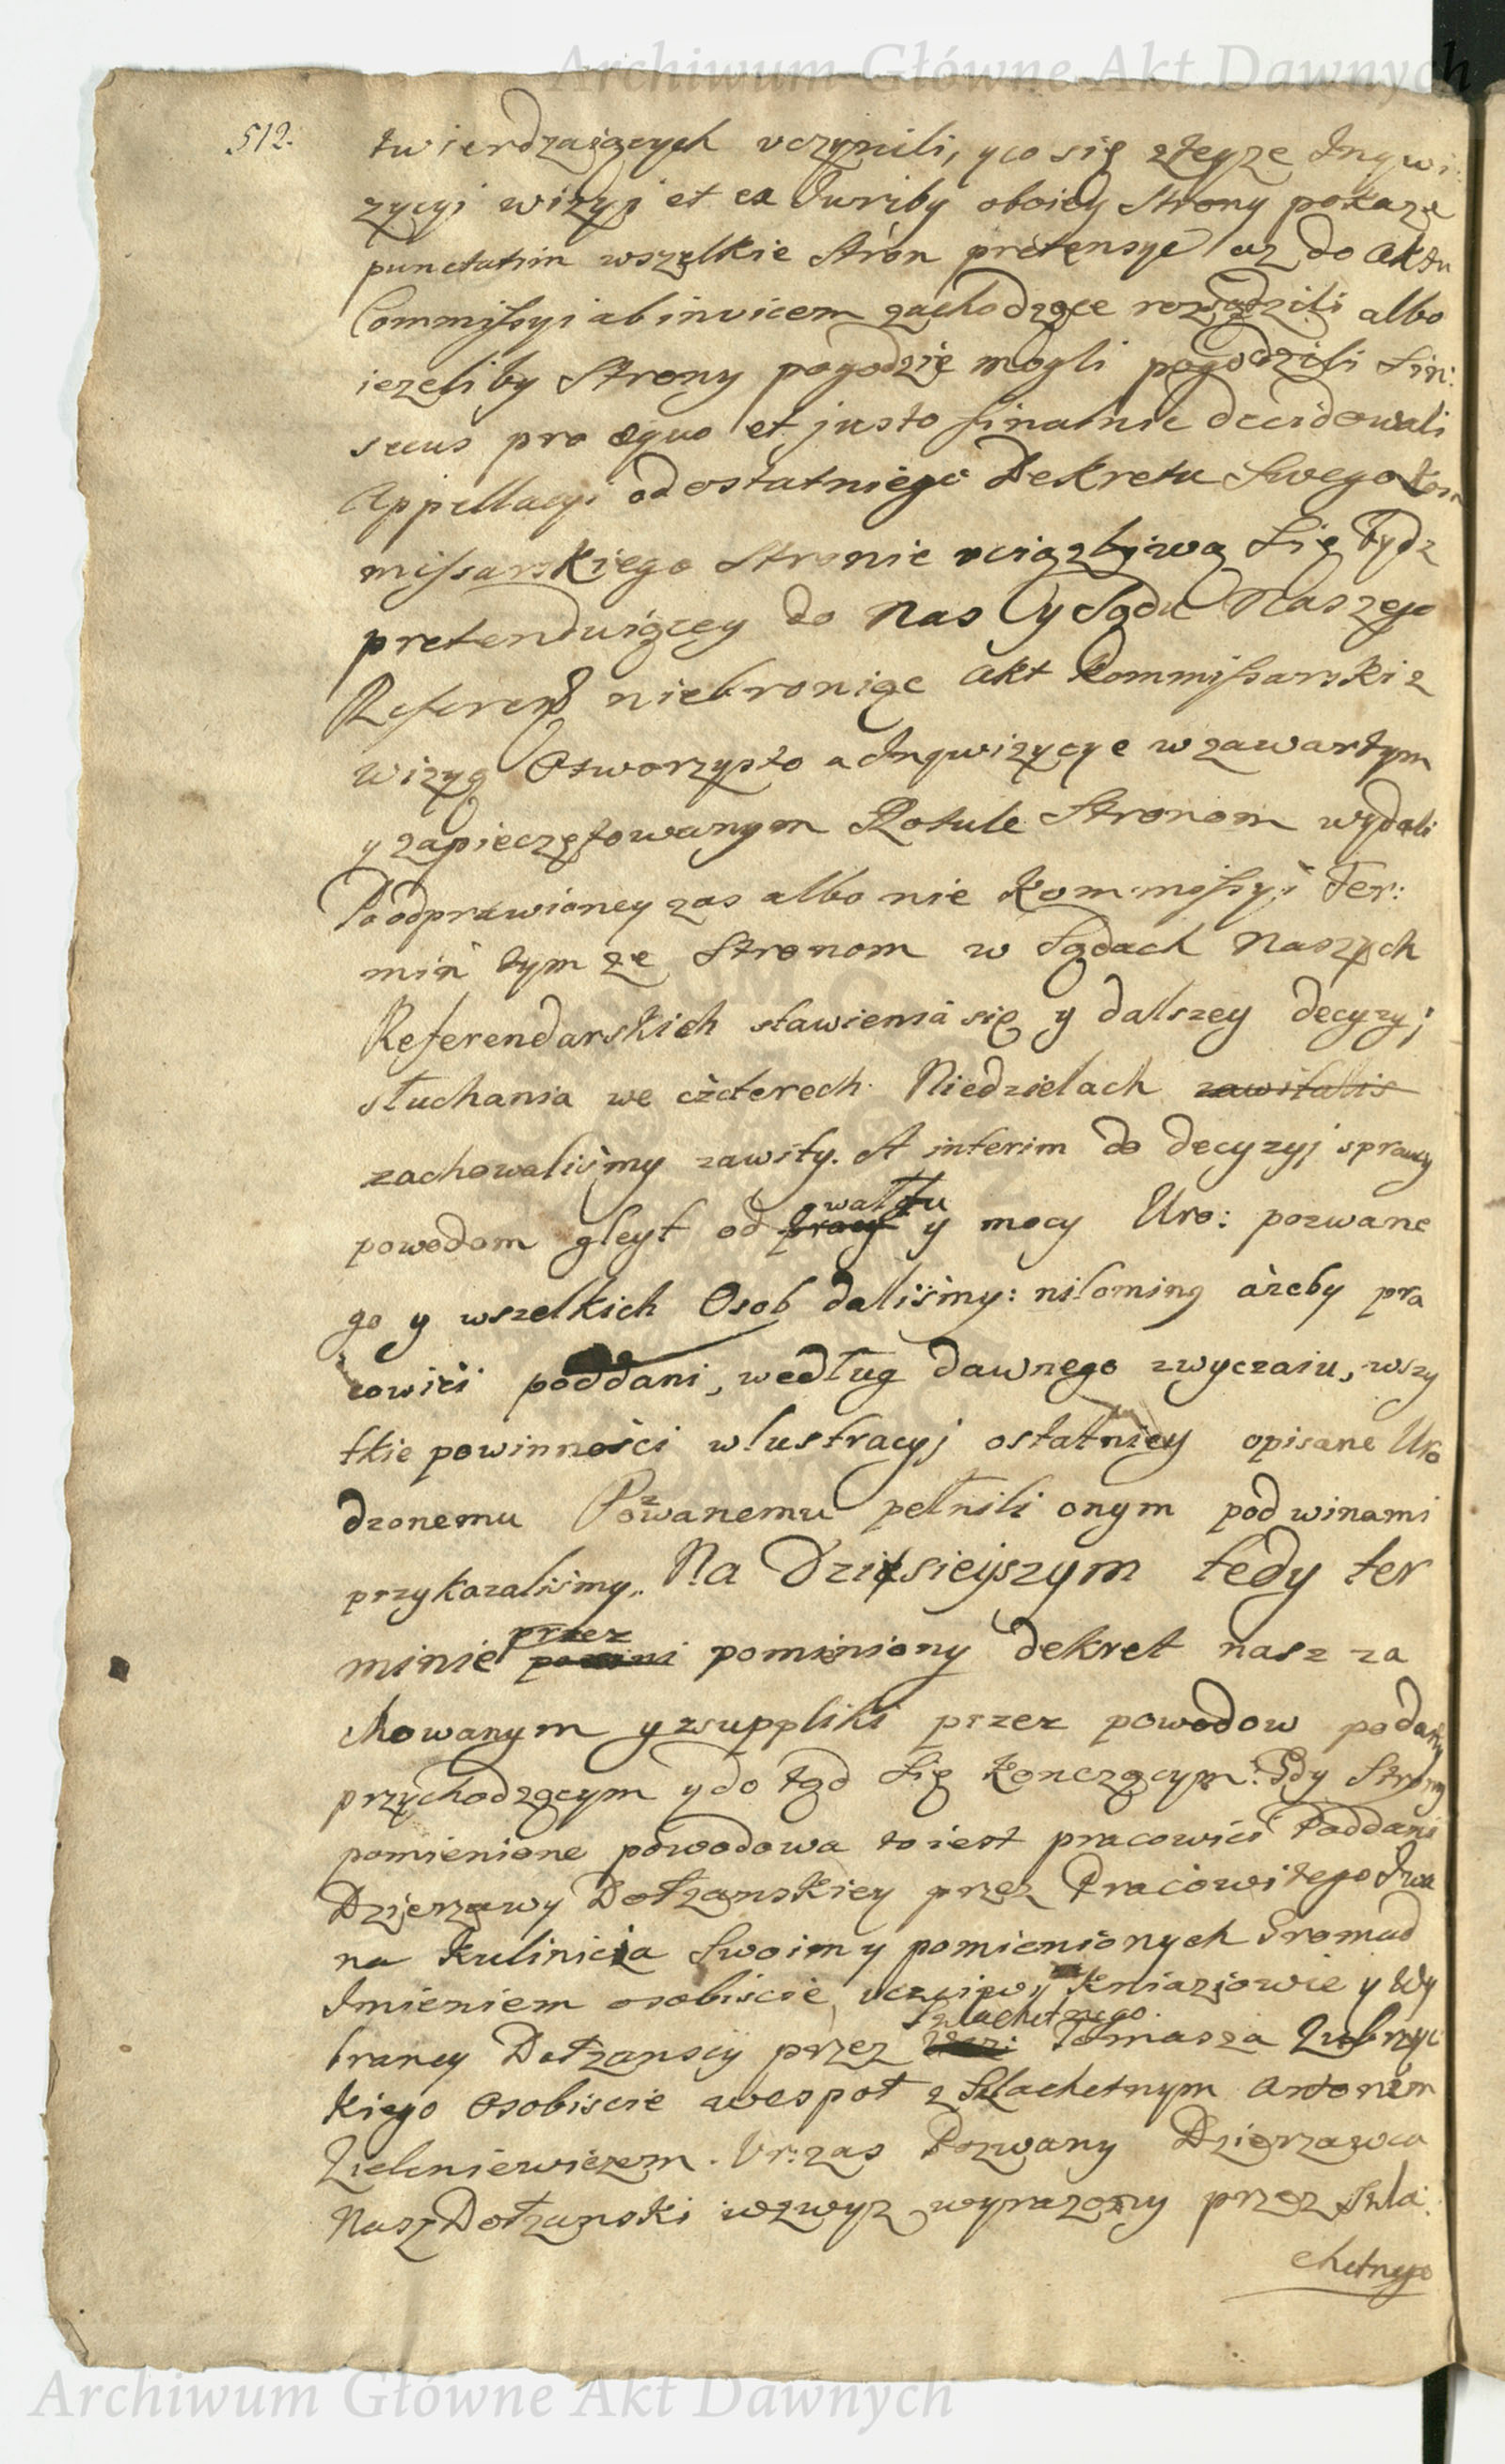 Archiwum Główne Akt Dawnych
512.
twierdzaiących vczynili, y co się zteyze Inqwi:
zycyi wizyi et ex Juriby oboiey Strony pokaze
punctatim wszelkie Stron pretensye az do Aktu
Commissyi abinvicem zachodzące rozsądzili albo
iezeliby Strony pogodzię mogli pogodzili Sin:
secus pro æquo et justo finalnie decidowali
Appellacyi od ostatniego Dekretu Swego Kom
missarskiego Stronie uciązliwą Się bydz
pretenduiącey do Nas y Sądu Naszego
Referend niebroniąc Akt Kommissarski z
wizyą Otworzysto a Inqwizycye w zawartym
y zapieczętowanym Rotule Stronom wydali
Po odprawioney zas albo nie Kommissyi Ter:
min tym ze Stronom w Sądach Naszych
Referendarskich stawienia się y dalszey decyzyi
słuchania we czterech Niedzielach zawitalis
zachowaliśmy zawity. A interim do decyzyj sprawy
powodom gleyt od pracy gwałtu y mocy Uro: pozwane
go y wszelkich Osob daliśmy: niloming ażeby pra
cowici poddani, według dawnego zwyczaiu, wszy
tkie powinności w lustracyj ostatniey opisane Uro
dzonemu Pozwanemu pełnili onym pod winami
przykazaliśmy. Na Dzisieyszym tedy ter
minie przez pominiony dekret nasz za
chowanym y zsuppliki przez powodow podaney
przychodzącym y do tąd Się konczącym. Gdy Strony
pomienione powodowa to iest pracowici Poddani
Dzierzawy Dołzanskiey przez Pracowitego Iwa
na Kulinicza Swoim y pomienionych Gromad
Imieniem osobiscie, uczciwi Kniaziowie y Wy
brancy Dołzanscy przez Szlachetnego Tomasza Zubrzyc
kiego Osobiscie wespoł z Szlachetnym Antonim
Zieleniewiczem. Ur: zas Pozwany Dzierzawca
Nasz Dołzanski wzwyz wyrazony przez Szla:
chetnego
Archiwum Główne Akt Dawnych